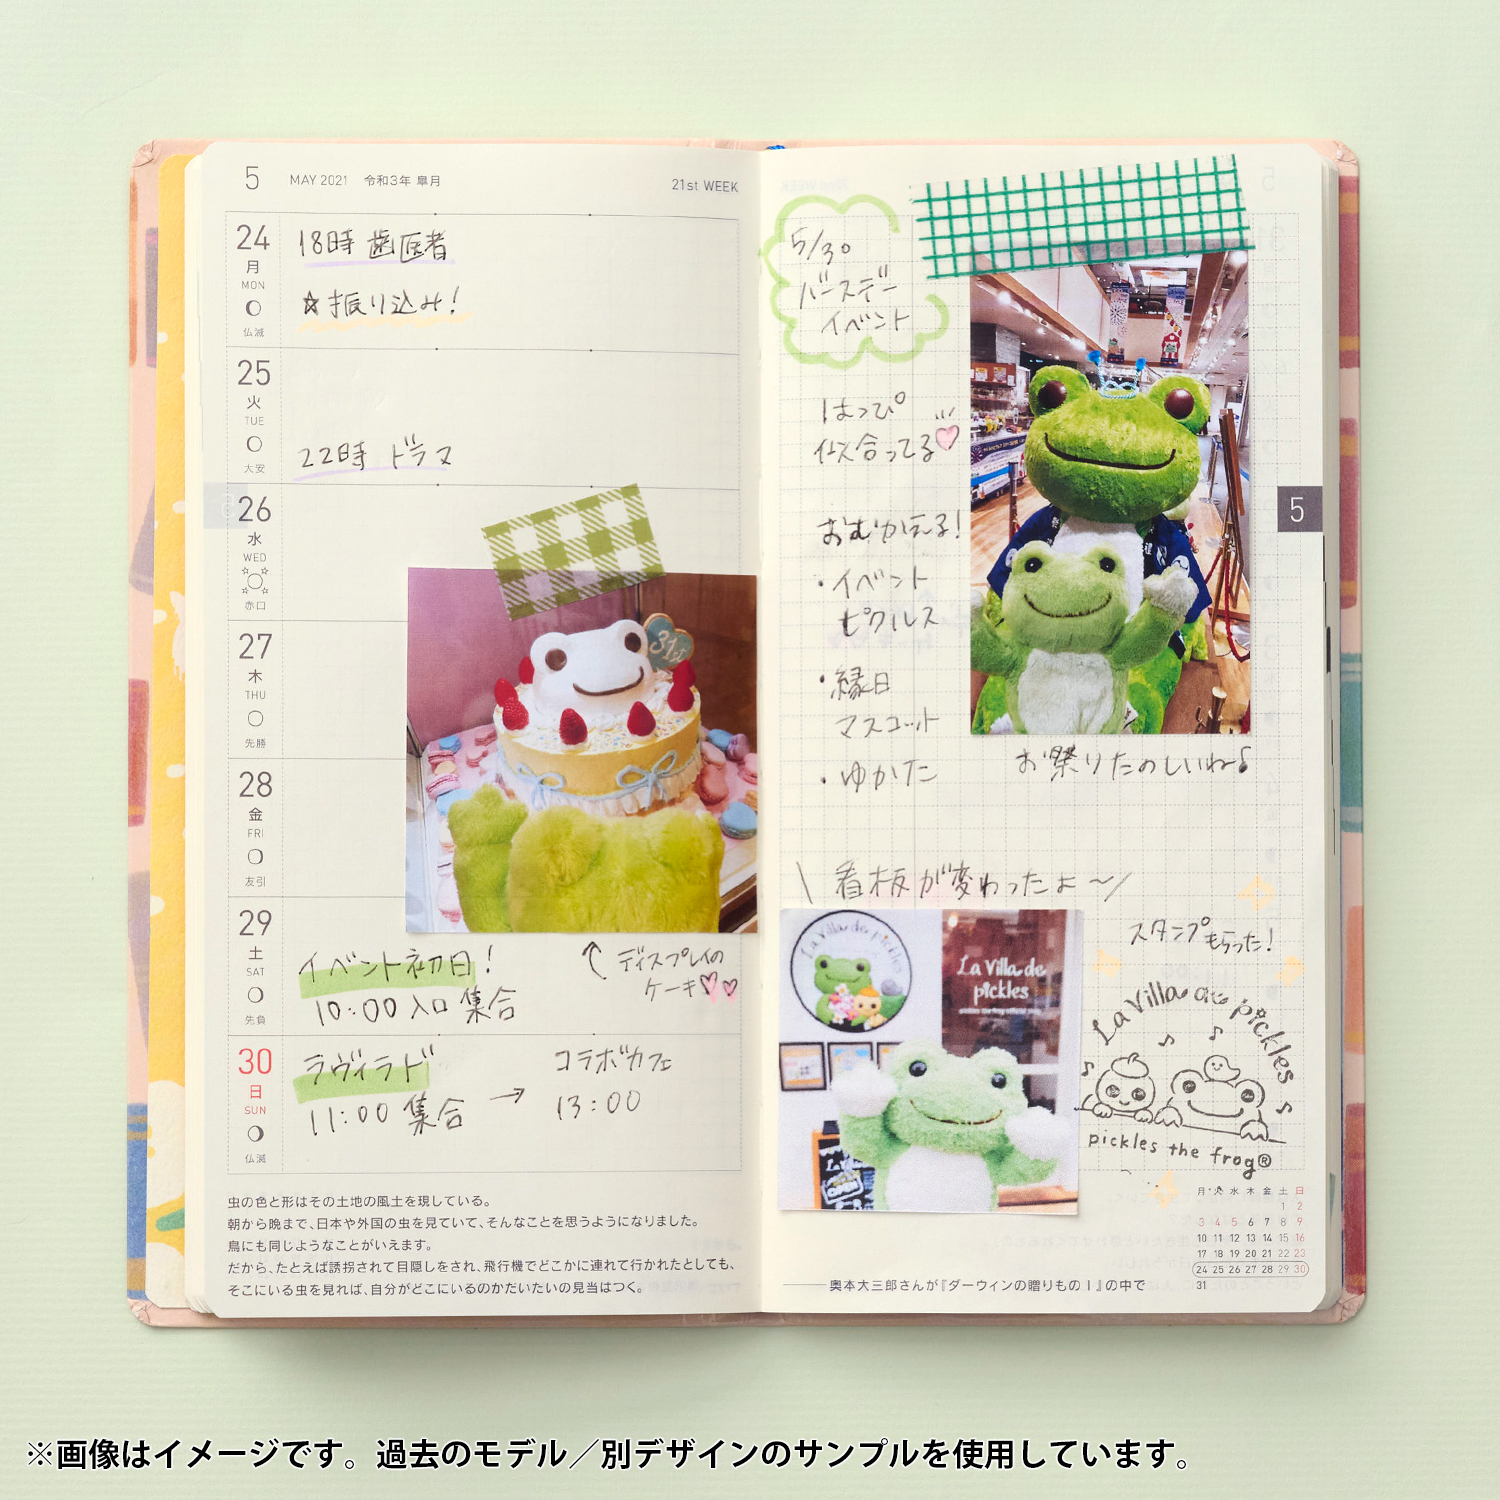 5 MAY 2021 令和3年 皐月
21st WEEK
24
月
MON
仏滅
18時 歯医者
☆振り込み!
25
火
TUE
大安
22時 ドラマ
26
水
WED
赤口
27
木
THU
先勝
31st
28
金
FRI
友引
29
土
SAT
先負
イベント初日!
10:00 入口 集合
↑ ディスプレイの
ケーキ♡♡
30
日
SUN
仏滅
ラヴィラド
11:00 集合
→ コラボカフェ
13:00
虫の色と形はその土地の風土を現している。
朝から晩まで、日本や外国の虫を見ていて、そんなことを思うようになりました。
鳥にも同じようなことがいえます。
だから、たとえば誘拐されて目隠しをされ、飛行機でどこかに連れて行かれたとしても、
そこにいる虫を見れば、自分がどこにいるのかだいたいの見当はつく。
5/30
バースデー
イベント
はっぴ
似合ってる♡
おむかえる!
・イベント
ピクルス
・縁日
マスコット
・ゆかた
お祭りたのしいね♪
5
\ 看板が変わったよ〜/
La Villa de pickles
La Villa de
pickles
スタンプもらった!
La Villa de pickles
pickles the frog®
月 火 水 木 金 土 日
1 2
3 4 5 6 7 8 9
10 11 12 13 14 15 16
17 18 19 20 21 22 23
24 25 26 27 28 29 30
31
――奥本大三郎さんが『ダーウィンの贈りものⅠ』の中で
※画像はイメージです。過去のモデル／別デザインのサンプルを使用しています。